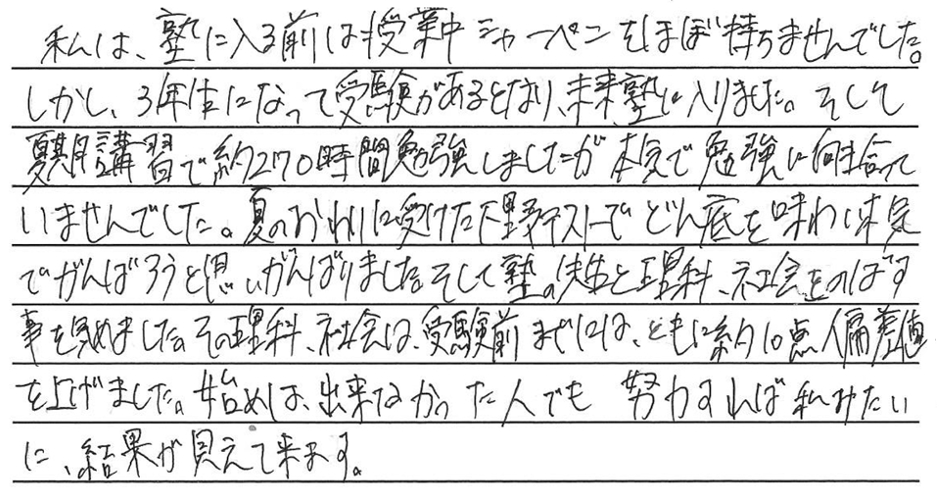 私は、塾に入る前は授業中シャーペンをほぼ持ちませんでした。
しかし、3年生になって受験があるとなり、未来塾に入りました。そして
夏期講習で約270時間勉強しましたが本気で勉強に向き合って
いませんでした。夏のおわりに受けた下野テストでどん底を味わい本気
でがんばろうと思いがんばりました。そして塾の先生と理科、社会をのばす
事を決めました。その理科、社会は、受験前までには、ともに約10点偏差値
を上げました。始めは、出来なかった人でも努力すれば私みたい
に、結果が見えて来ます。